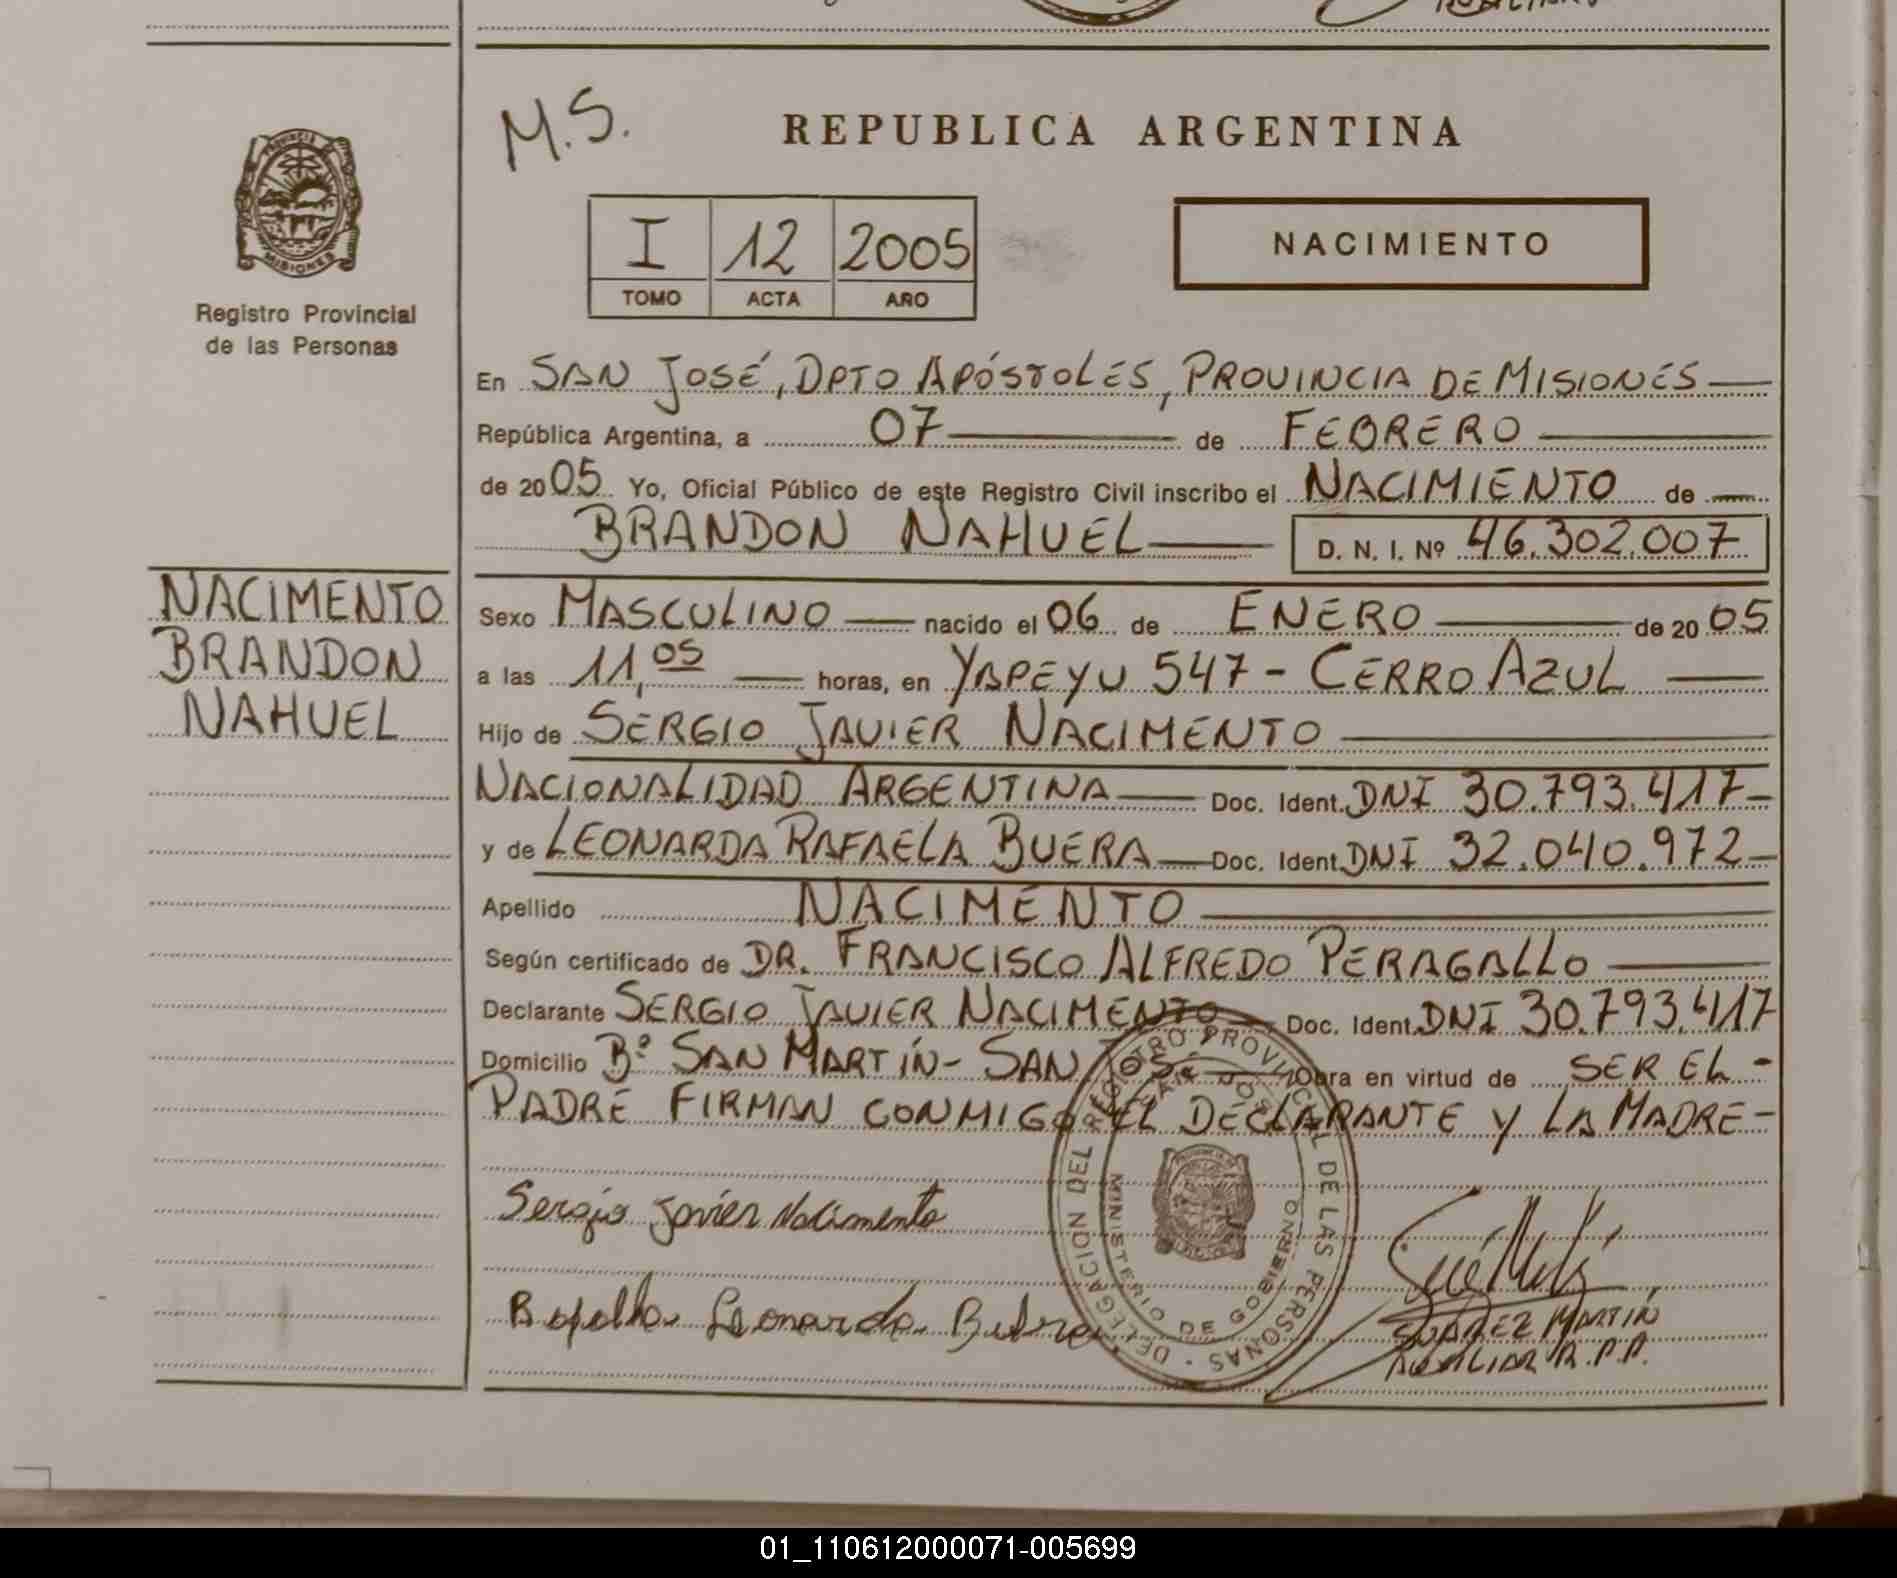 M.S.
REPUBLICA ARGENTINA
I 12 2005
TOMO ACTA AÑO
NACIMIENTO
MISIONES
Registro Provincial
de las Personas
En SAN JOSÉ, DPTO APÓSTOLES, PROVINCIA DE MISIONES
República Argentina, a 07 de FEBRERO
de 2005 Yo, Oficial Público de este Registro Civil inscribo el NACIMIENTO de
BRANDON NAHUEL D. N. I. Nº 46.302.007
NACIMENTO
BRANDON
NAHUEL
Sexo MASCULINO nacido el 06 de ENERO de 2005
a las 11,05 horas, en YAPEYU 547 - CERRO AZUL
Hijo de SERGIO JAVIER NACIMENTO
NACIONALIDAD ARGENTINA Doc. Ident. DNI 30.793.417-
y de LEONARDA RAFAELA BUERA Doc. Ident. DNI 32.040.972-
Apellido NACIMENTO
Según certificado de DR. FRANCISCO ALFREDO PERAGALLO
Declarante SERGIO JAVIER NACIMENTO Doc. Ident. DNI 30.793.417
Domicilio Bº SAN MARTÍN - SAN JOSÉ Obra en virtud de SER EL -
PADRE FIRMAN CONMIGO EL DECLARANTE Y LA MADRE-
DELEGACION DEL REGISTRO PROVINCIAL DE LAS PERSONAS
MINISTERIO DE GOBIERNO
Sergio Javier Nacimento
Leonarda
SUAREZ MARTIN
AUXILIAR R.P.P.
01_110612000071-005699